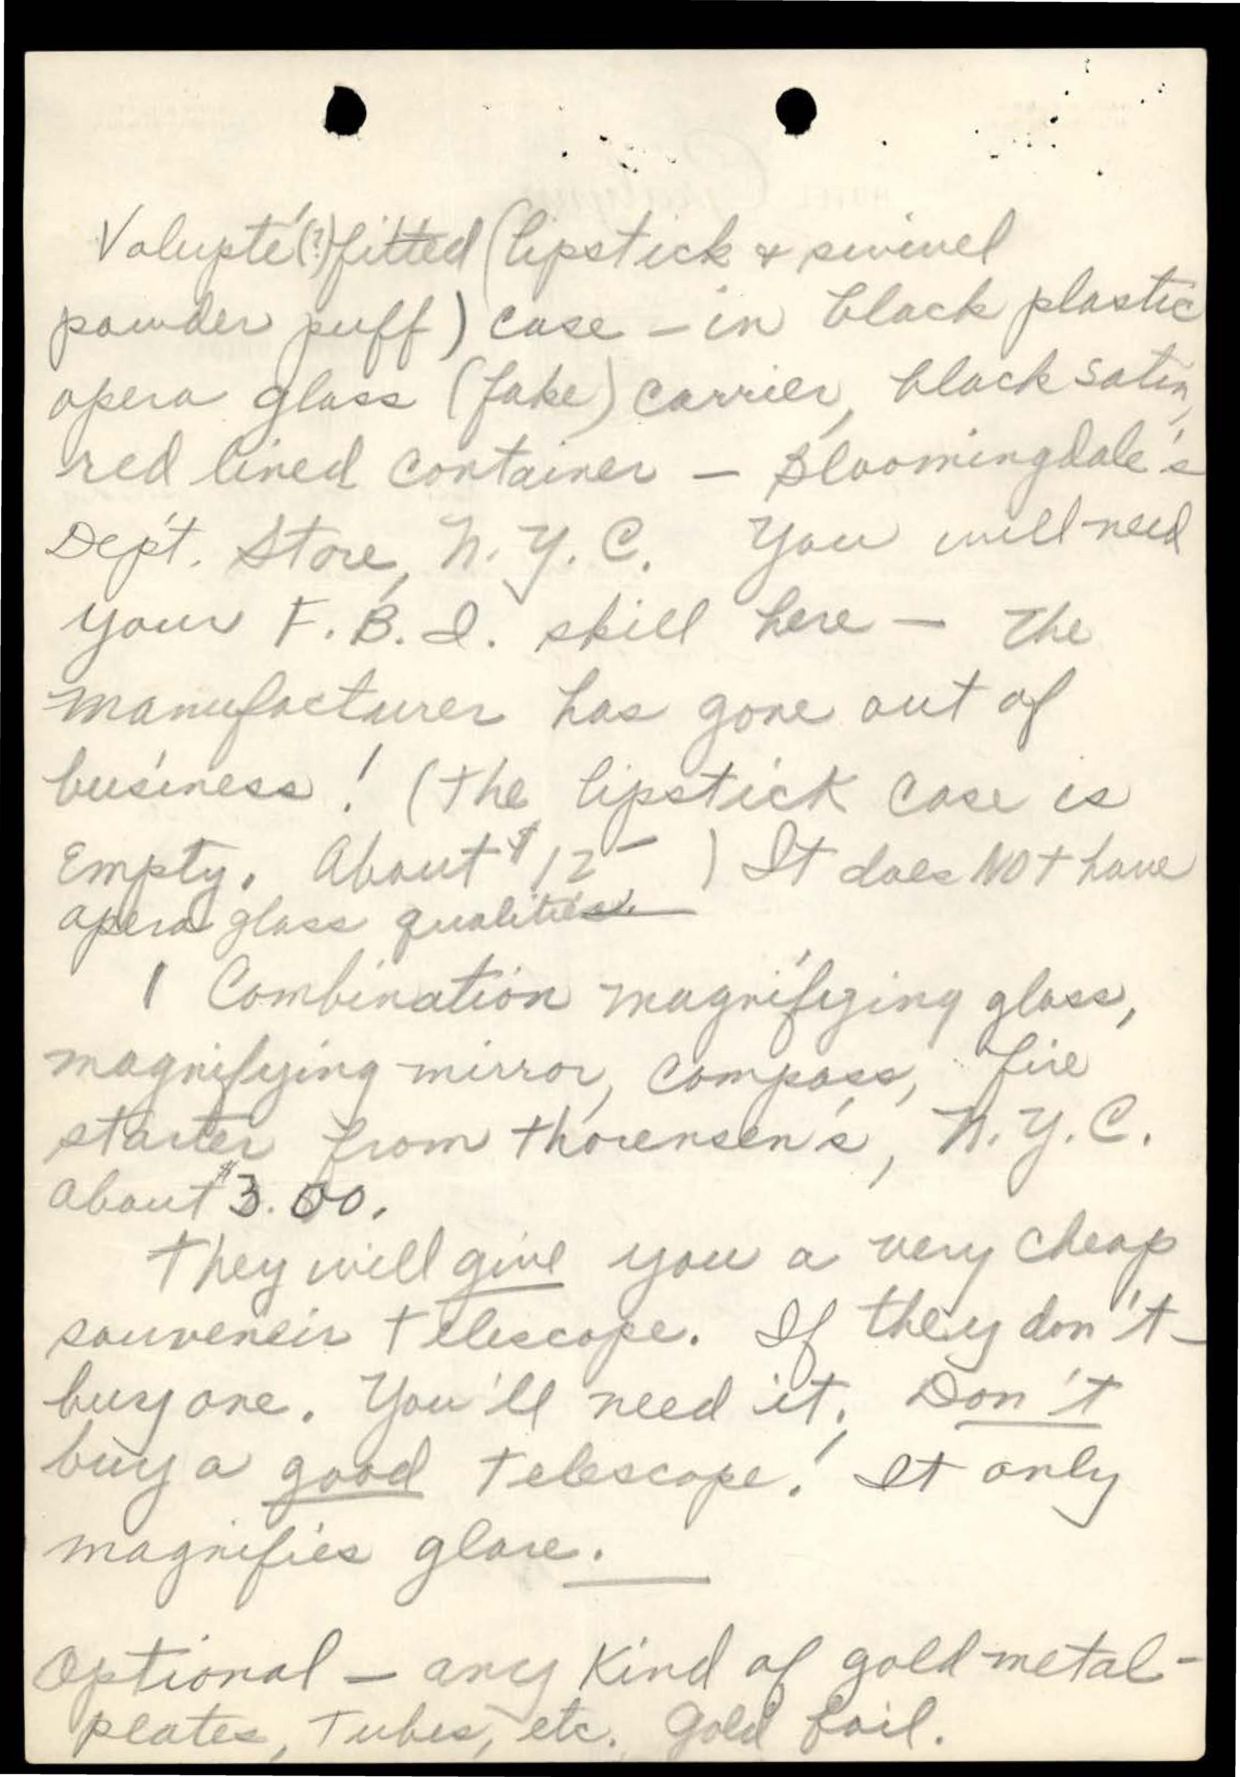 Volupté(?) fitted (lipstick & swivel
powder puff) case – in black plastic
opera glass (fake) carrier, black satin,
red lined container – Bloomingdale's
Dep't. Store, N.Y.C. You will need
your F.B.I. skill here – The
manufacturer has gone out of
business! (The lipstick case is
Empty. About $12– ) It does NOt have
opera glass qualities.
1 Combination magnifying glass,
magnifying mirror, compass, fire
starter from Thorensen's, N.Y.C.
About $3.00.
They will give you a very cheap
souveneir telescope. If they don't –
buy one. You'll need it. Don't
buy a good telescope! It only
magnifies glare.
Optional – any kind of gold metal –
plates, Tubes, etc. Gold foil.
HOTEL